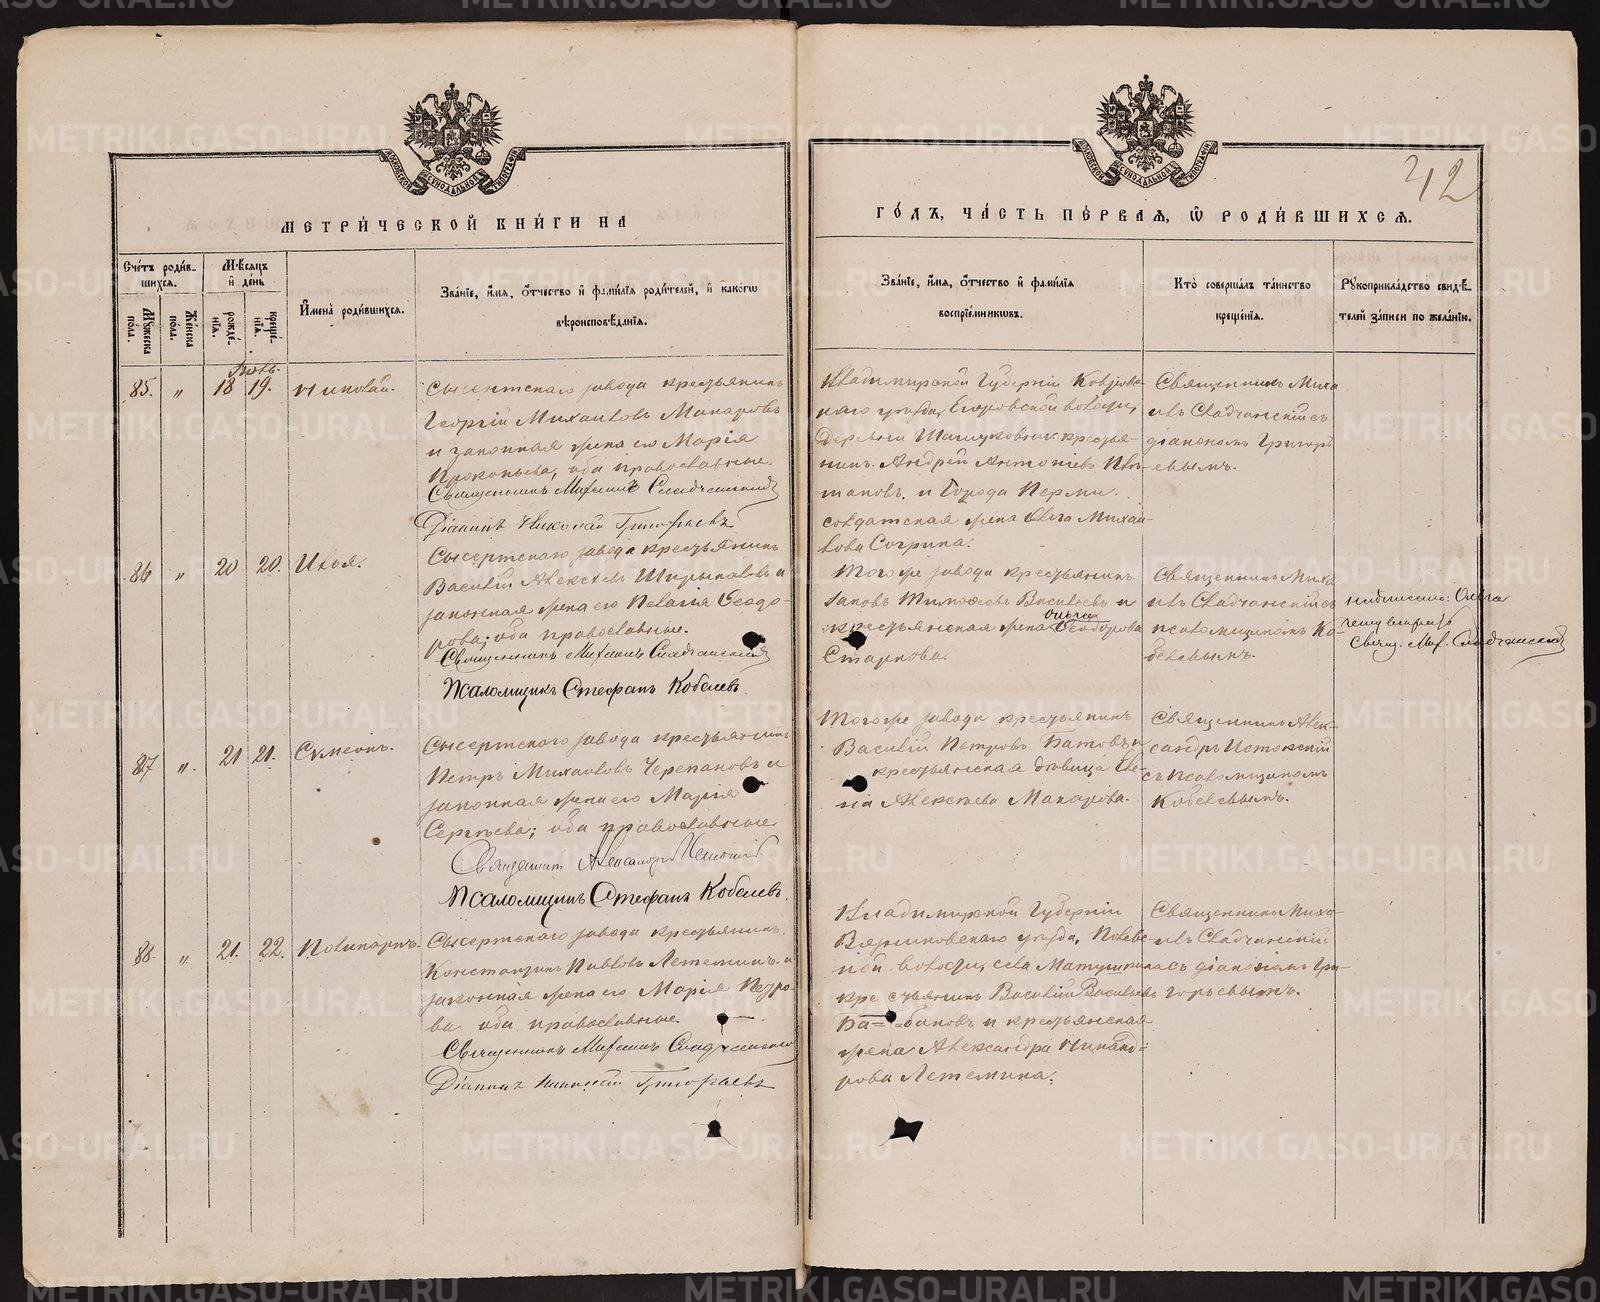 42
МЕТРИ́ЧЕСКОЙ КНИ́ГИ НА
ГО́ДЪ, ЧА́СТЬ ПЕ́РВАЯ, Ѡ РОДИ́ВШИХСЯ.
Сче́тъ роди́в-
шихся.
Мѣсяцъ
и день
Му́жеска
по́ла.
Же́нска
по́ла.
рожде́-
нія.
креще́-
нія.
Имена̀ роди́вшихся.
Зва́ніе, имя, отчество и фами́лія роди́телей, и како́гѡ
вѣроисповѣданія.
Зва́ніе, имя, отчество и фами́лія
воспріе́мникѡвъ.
Кто̀ соверша́лъ та́инство
креще́нія.
Рукоприкла́дство свидѣ-
телей за́писи по жела́нію.
85. " 18 19. Николай.
Сысертскаго завода крестьянинъ
Георгій Михаиловъ Макаровъ
и законная жена его Марія
Прокопьева, оба православные
Священникъ Михаилъ
Діаконъ Николай Григорьевъ
Владимирской Губерніи Ковров-
скаго уѣзда, Егоровской волости,
деревни крестья-
нинъ Андрей Антоніевъ
и Города Перми
солдатская жена Ольга Михаи-
лова Согрина.
Священникъ Миха-
илъ съ
діакономъ Григорь-
евымъ.
86 " 20 20. Илья.
Сысертскаго завода крестьянинъ
Василій Алексѣевъ и
законная жена его Пелагія Ѳеодо-
рова; оба православные.
Священникъ Михаилъ
Псаломщикъ Стефанъ Кобелевъ.
Того же завода крестьянинъ
Іаковъ Тимоѳеевъ Васильевъ и
крестьянская жена Ольга Ѳеодорова
Старкова.
Священникъ Миха-
илъ съ
псаломщикомъ Ко-
белевымъ.
надписано: Ольга
Свящ. Мих.
87 " 21 21. Сѵмеонъ.
Сысертскаго завода крестьянинъ
Петръ Михаиловъ Черепановъ и
законная жена его Марія
Сергѣева; оба православные
Священникъ Александръ
Псаломщикъ Стефанъ Кобелевъ.
Того же завода крестьянинъ
Василій Петровъ Батовъ и
крестьянская дѣвица Ев-
гія Алексѣева Макарова.
Священникъ Алек-
сандръ
съ псаломщикомъ
Кобелевымъ.
88. " 21. 22. Поликарпъ.
Сысертскаго завода крестьянинъ
Константинъ Павловъ Летеминъ и
законная жена его Марія Петро-
ва оба православные.
Священникъ Михаилъ
Діаконъ Николай Григорьевъ
Владимирской Губерніи
Вязниковскаго уѣзда,
волости, села
крестьянинъ Василій Васильевъ
Ба==бановъ и крестьянская
жена Александра Никано-
рова Летемина.
Священникъ Миха-
илъ
съ діакономъ Гри-
горьевымъ.
METRIKI.GASO-URAL.RU